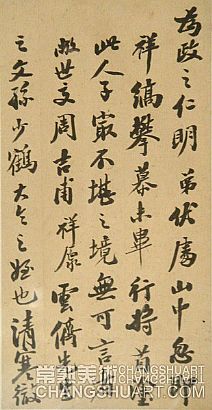 為政之仁明 弟伏廬山中忽
祥縞鞶慕未畢行將首
此人子最不堪之境無可言
敝世交周吉甫祥康雲儕
之文孫少鶴大令之姪也清寒徹
常熟美術
CHANGSHUART